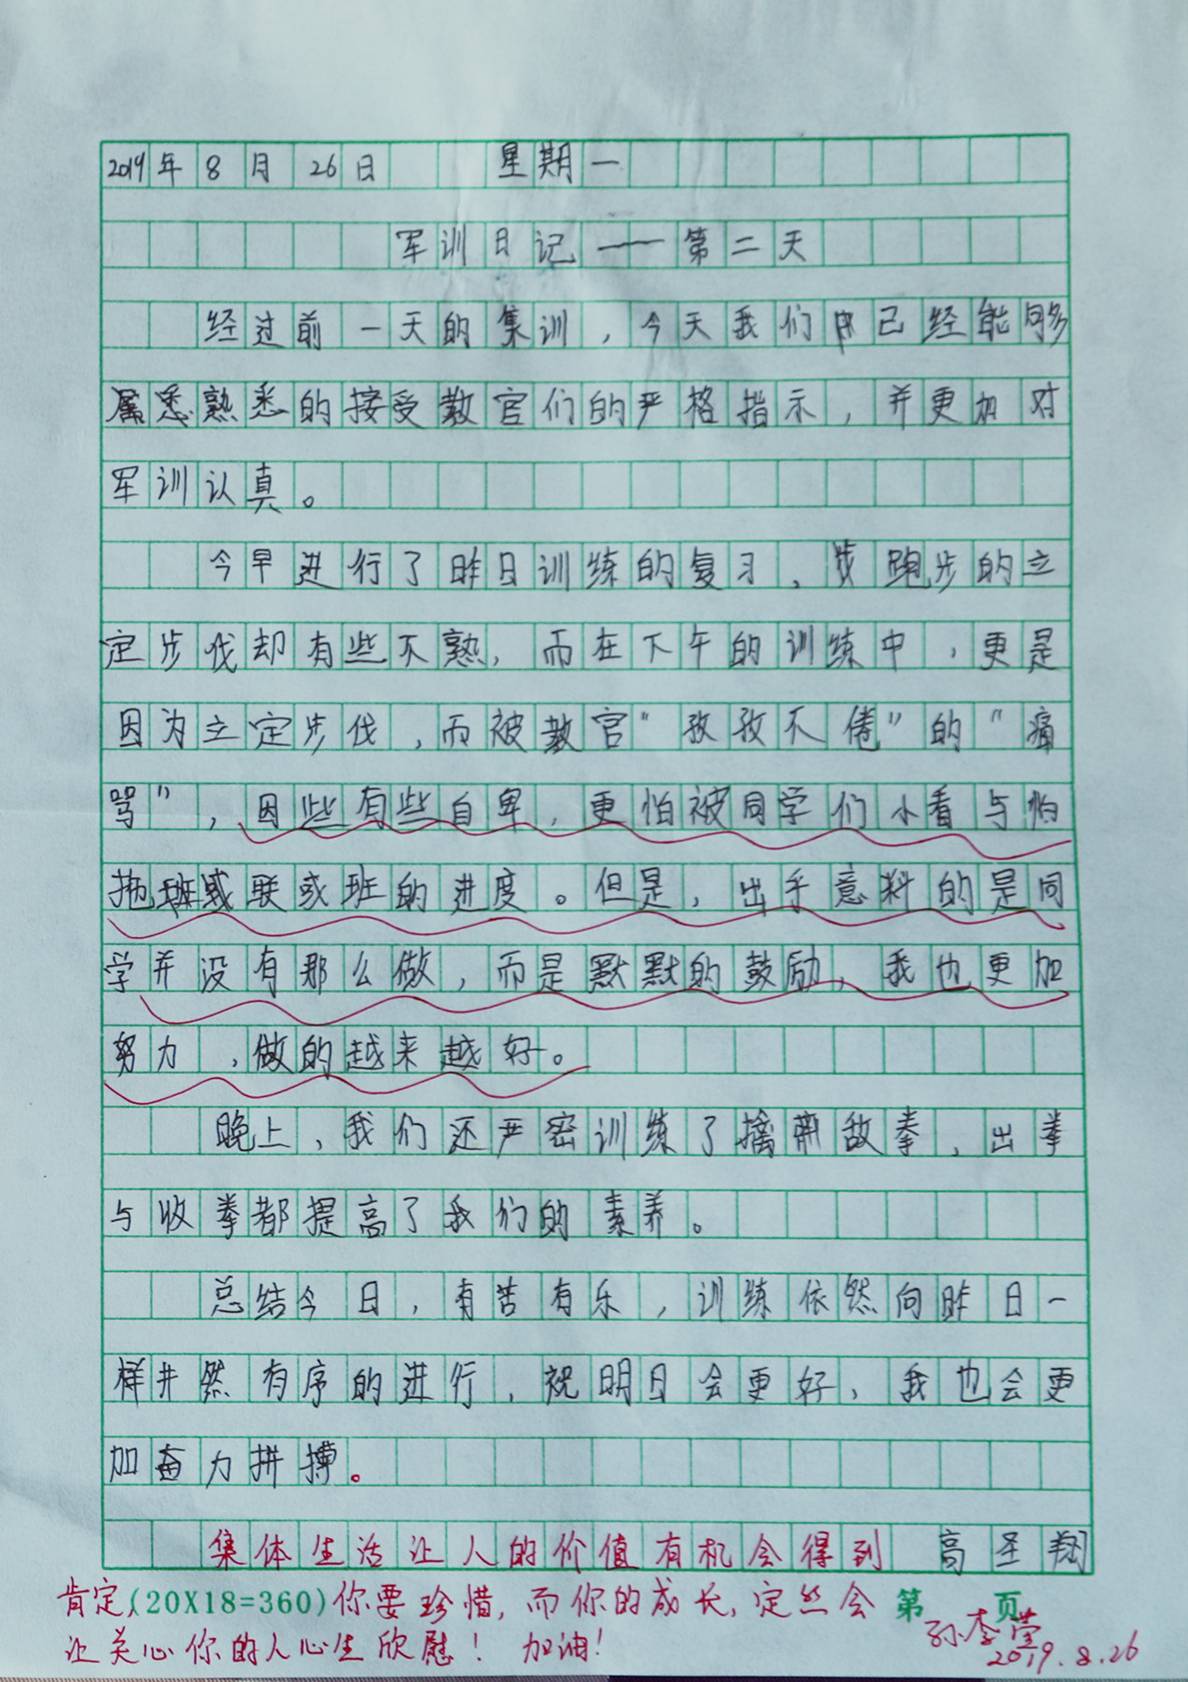 2019年8月26日 星期一
军训日记——第二天
经过前一天的集训，今天我们已经能够
熟悉的接受教官们的严格指示，并更加对
军训认真。
今早进行了昨日训练的复习，跑步的立
定步伐却有些不熟，而在下午的训练中，更是
因为立定步伐，而被教官“孜孜不倦”的“痛
骂”，因些有些自卑，更怕被同学们小看与怕
拖班或联或班的进度。但是，出乎意料的是同
学并没有那么做，而是默默的鼓励，我也更加
努力，做的越来越好。
晚上，我们还严密训练了擒敌拳，出拳
与收拳都提高了我们的素养。
总结今日，有苦有乐，训练依然向昨日一
样井然有序的进行，祝明日会更好，我也会更
加奋力拼搏。
集体生活让人的价值有机会得到 高圣翔
肯定，(20X18=360)你要珍惜，而你的成长，定然会 第 页
让关心你的人心生欣慰！加油！ 孙李莹
2019.8.26